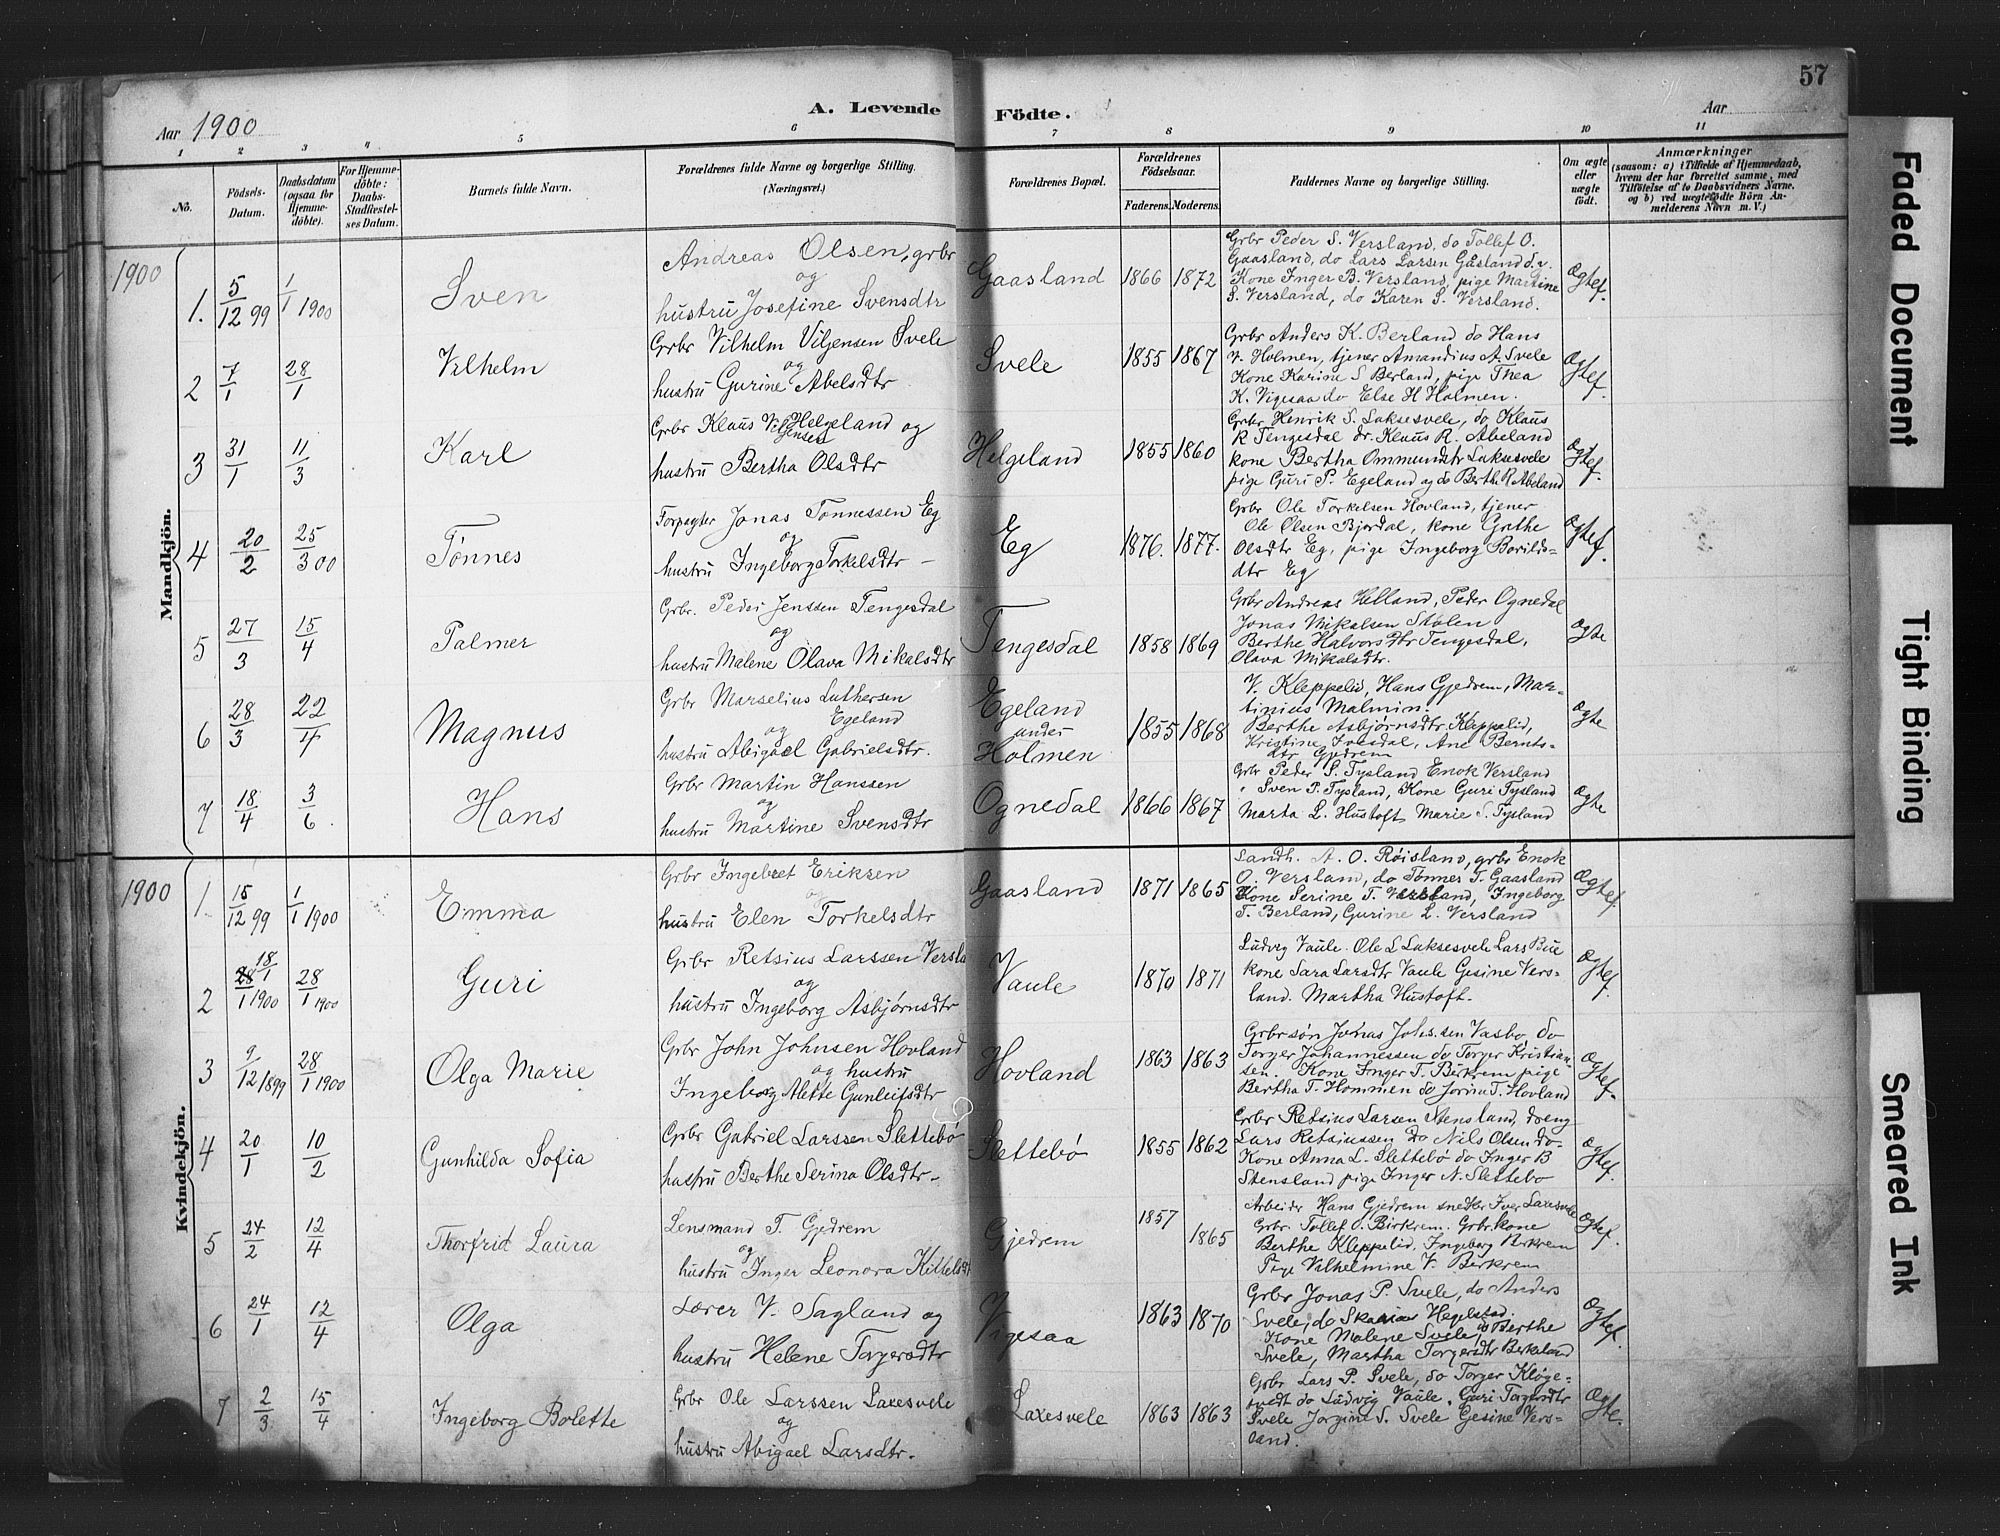 57
A. Levende Födte.
Aar 1900
Aar
1 2 3 4 5 6 7 8 9 10 11
No.
Födsels-Datum.
Daabsdatum (ogsaa for Hjemme-döbte).
For Hjemme-döbte: Daabs-Stadfæstel-ses Datum.
Barnets fulde Navn.
Forældrenes fulde Navne og borgerlige Stilling.
(Næringsvei.)
Forældrenes Bopæl.
Forældrenes Födselsaar.
Faderens. Moderens.
Faddernes Navne og borgerlige Stilling.
Om ægte eller uægte födt.
Anmærkninger
(saasom: a) i Tilfælde af Hjemmedaab,
hvem der har forrettet samme, med
Tilföielse af to Daabsvidners Navne,
og b) ved uægtefödte Börn An-
melderens Navn m. V.)
Mandkjön.
1900
1. 5/12 99 1/1 1900 Sven
Andreas Olsen, grbr
og
hustru Josefine Svensdtr
Gaasland 1866 1872
Grbr Peder S. Versland, do Tollef O.
Gaasland, do Lars Larsen Gåsland d.y.
Kone Inger B. Versland, pige Martine
S. Versland, do Karen S. Versland.
Ægtef.
2 7/1 28/1 Vilhelm
Grbr Vilhelm Viljensen Svele
og
hustru Gurine Abelsdtr
Svele 1855 1867
Grbr Anders K. Berland do Hans
V. Holmen, tjener Amandius A. Svele
Kone Karine S Berland, pige Thea
K. Vigesaa do Else H Holmen.
Ægtef.
3 31/1 11/3 Karl
Grbr Klaus Viljensen Helgeland og
hustru Bertha Olsdtr
Helgeland 1855 1860
Grbr Henrik S. Luksesvele, do Klaus
R Tengesdal dr. Klaus R. Abeland
kone Bertha Ommundsdtr Luksesvele
pige Guri P. Egeland og do Berthe R Abeland
Ægtef.
4 20/2 25/3 00 Tønnes
Forpagter Jonas Tønnessen Eg
og
hustru Ingeborg Torkelsdtr –
Eg 1876. 1877.
Grbr Ole Torkelsen Hovland, tjener
Ole Olsen Bjordal, kone Grethe
Olsdtr Eg, pige Ingeborg Bovilds-
dtr Eg
Ægtef.
5 27/3 15/4 Palmer
Grbr. Peder Jenssen Tengesdal
og
hustru Malene Olava Mikalsdtr
Tengesdal 1858 1869
Grbr Andreas Helland, Peder Ognedal
Jonas Mikalsen Stølen
Berthe Halvorsdtr Tengesdal,
Olava Mikalsdtr.
Ægte
6 28/3 22/4 Magnus
Grbr Marselius Luthersen
Egeland
og
hustru Abigael Gabrielsdtr.
Egeland
under
Holmen 1855 1868
V. Kleppelid, Hans Gjedrem, Mar-
tinius Malmin.
Berthe Asbjørnsdtr Kleppelid,
Kristine Ivesdal, Ane Bernts-
dtr Gjedrem
Ægte
7 18/4 3/6. Hans
Grbr Martin Hanssen
og
hustru Martine Svensdtr
Ognedal 1866 1867
Grbr Peder S. Tysland Enok Versland
" Sven P. Tysland, Kone Guri Tysland
Marta L. Hustoft Marie S. Tysland
Ægte
Kvindekjön.
1900
1. 15/12 99 1/1 1900 Emma
Grbr Ingebret Eriksen
og
hustru Elen Torkelsdtr
Gaasland 1871 1865
Sandh. A. O. Røisland, grbr Enok
O. Versland, do Tønnes T. Gaasland
Kone Serine T. Versland, Ingeborg
T. Berland, Gurine L. Versland
Ægtef.
2 18/1 28/1 1900 28/1 1900 Guri
Grbr Retsius Larssen Versla
og
hustru Ingeborg Asbjørnsdtr
Vaule 1870 1871
Ludvig Vaule. Ole L Luksesvele Lars Bue
kone Sara Larsdtr Vaule Gesine Vers-
land. Martha Hustoft.
Ægtef.
3 9/12 1899 28/1 1900 Olga Marie
Grbr John Johnsen Hovland
og hustru
Ingeborg Alette Gunleifsdtr
Hovland 1863 1863
Grbrsøn Jonas Johssen Vasbo, do
Torger Johannessen do Torger Kristian-
sen. Kone Inger T. Birkrem pige
Bertha T. Hommen do Jorine T. Hovland
Ægtef.
4 20/1 10/2 Gunhilda Sofia
Grbr Gabriel Larssen Slettebø
hustru Berthe Serina Olsdtr –
Slettebø 1855 1862
Grbr Retsius Larsen Stensland, dreng
Lars Retsiussen do Nils Olsen do –
Kone Anna L. Slettebø do Inger B
Stensland pige Inger N. Slettebø
Ægtef.
5 24/2 12/4 Thorfrid Laura
Lensmand T. Gjedrem
og
hustru Inger Leonora Kittelsdt
Gjedrem 1857 1865
Arbeider Hans Gjedrem snedker Iver Laxesvele
Grbr. Tollef O. Birkrem. Grbr.kone
Berthe Kleppelid, Ingeborg Birkrem
Pige Vilhelmine V. Birkrem
Ægtef.
6 24/1 12/4 Olga
Lærer V. Sagland og
hustru Helene Torgersdtr
Vigesaa 1863 1870
Grbr Jonas P. Svele, do Anders
Svele, do Hegelstad.
Kone Malene Svele, do Berthe
Svele, Martha Torgersdtr Birkeland
Ægtef.
7 2/3 15/4 Ingeborg Bolette
Grbr Ole Larssen Laxesvele
og
hustru Abigael Larsdtr.
Laxesvele 1863 1863
Grbr Lars P. Svele, do Torger Kløge-
tvedt do Ludvig Vaule. Guri Torgersdtr
Svele Jorgine S. Svele Gesine Vers-
land.
Ægte.
Faded Document
Tight Binding
Smeared Ink